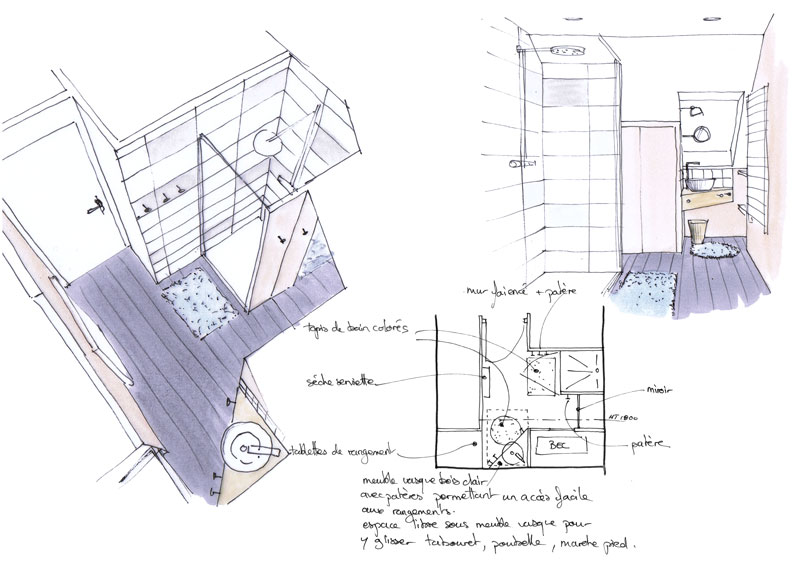 mur faïencé + patère
tapis de bain colorés
sèche serviette
miroir
HT 1800
tablettes de rangement
BEC
patère
meuble vasque bois clair
avec patères permettant un accès facile
aux rangements.
espace libre sous meuble vasque pour
y glisser tabouret, poubelle, marche pied.